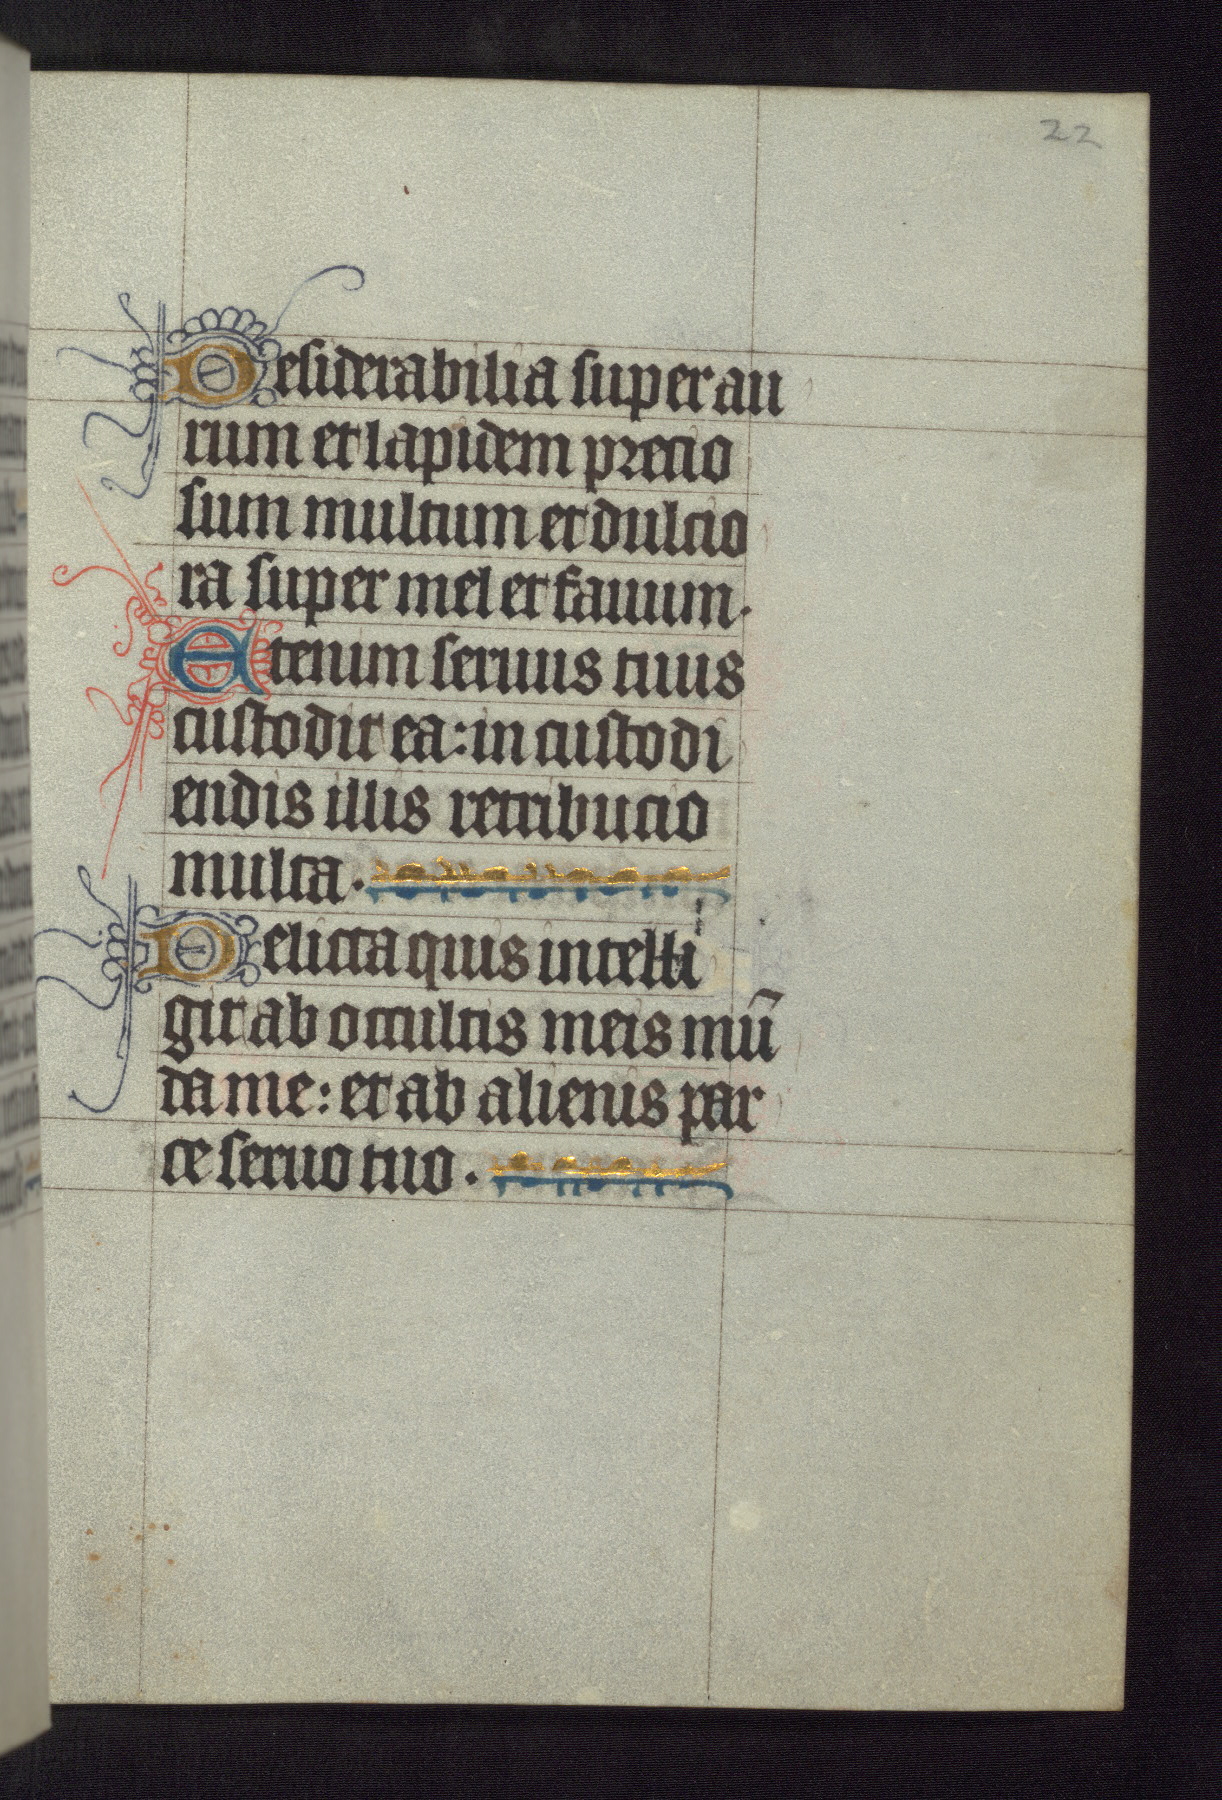 22
Desiderabilia super au
rum et lapidem precio
sum multum et dulcio
ra super mel et fauum.
Etenim seruus tuus
custodit ea: in custodi
endis illis retribucio
multa.
Delicta quis intelli
git ab occultis meis mū
da me: et ab alienis par
ce seruo tuo.